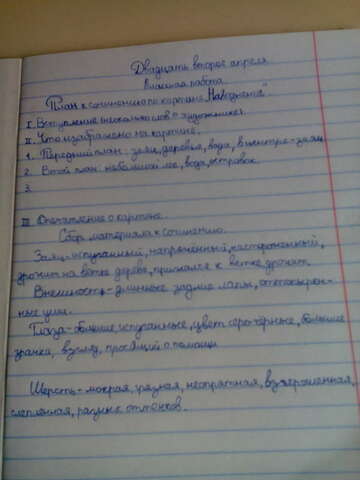 Двадцать второе апреля
Классная работа.
План к сочинению по картине "Наводнение".
I. Вступление (несколько слов о художнике).
II. Что изображено на картине.
1. Передний план: заяц, деревья, вода, в центре - заяц
2. Второй план: небольшой лес, вода, островок.
3.
III. Впечатление о картине
Сбор материала к сочинению.
Заяц - испуганный, напряженный, настороженный,
дрожит на ветке дерева, прижался к ветке дрожит
Внешность - длинные задние лапы, оттопырен-
ные уши.
Глаза - большие испуганные, цвет серо-чёрные, большие
зрачки, взгляд, просящий о помощи
Шерсть - мокрая, грязная, неопрятная, взъерошенная,
слепленная, разных оттенков.